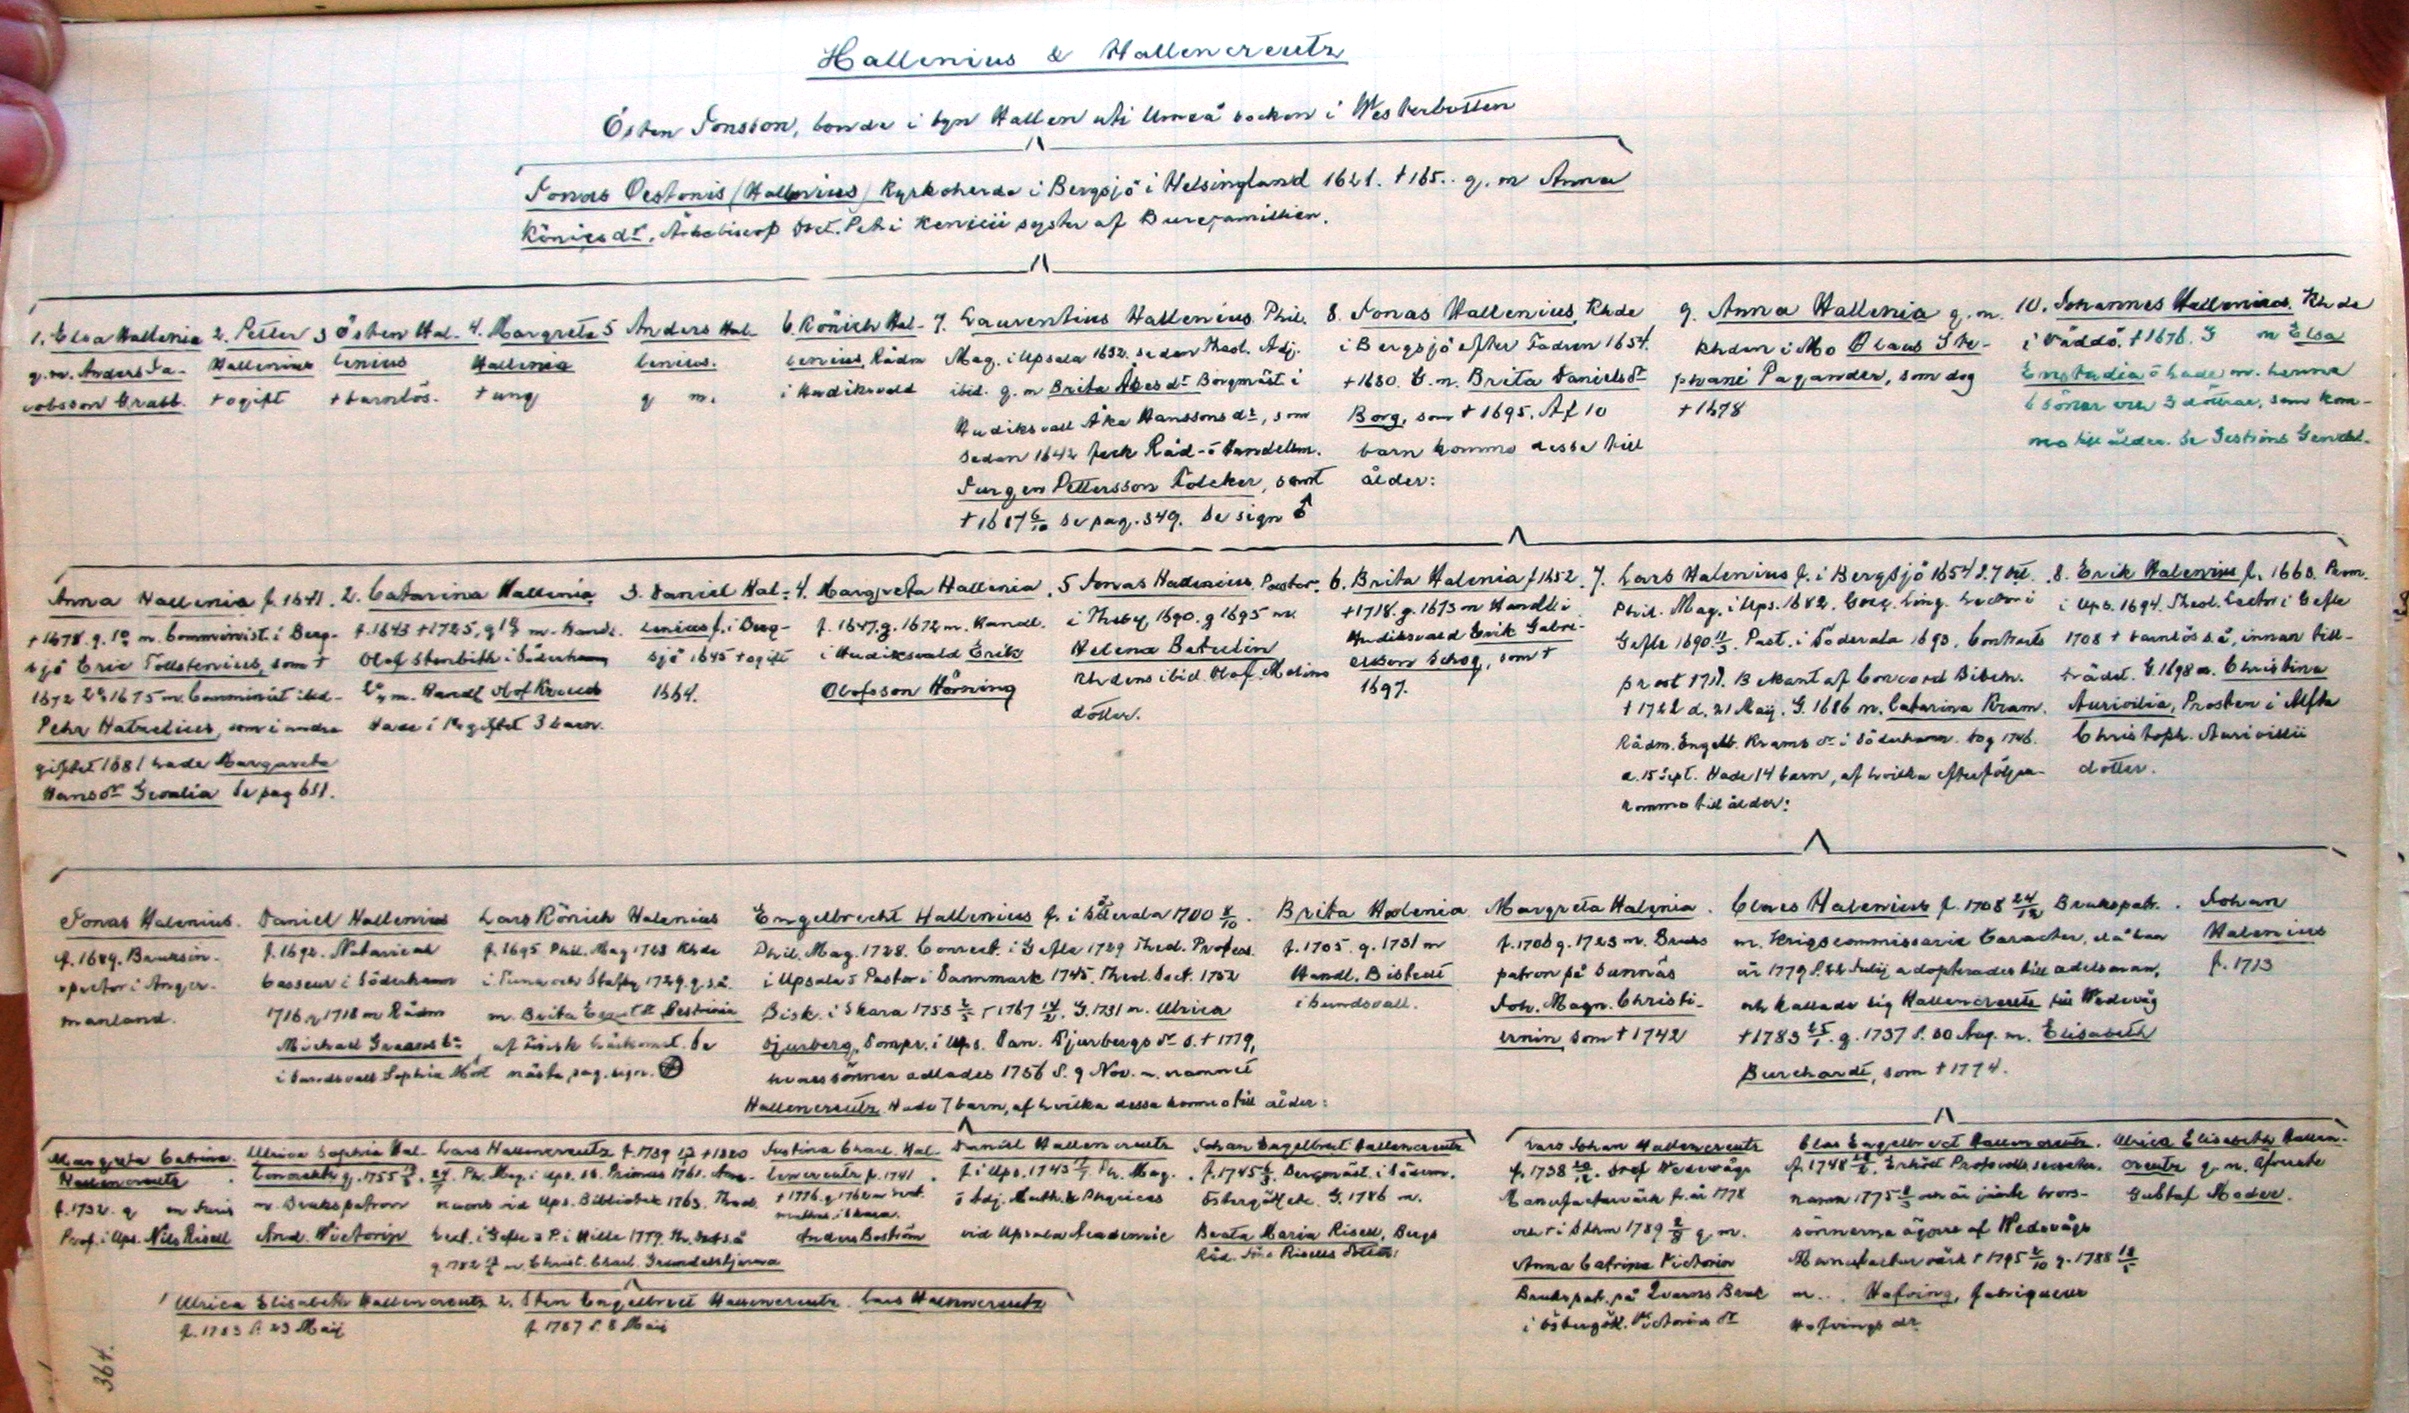 Hallenius & Hallencreutz
Östen Jonsson, bonde i byn Hallen uti Umeå socken i Westerbotten
Jonas Oestonis (Hallenius) Kyrkoherde i Bergsjö i Helsingland 1621. † 165.. g. m Anna
Königsdr, Ärkebiscop Doct. Petri Kenicii syster af Burefamilien.
1. Elsa Hallenia
g. m. Anders Ja-
cobsson Grabb.
2. Petter
Hallenius
† ogift
3 Östen Hal-
lenius
† barnlös.
4. Margreta
Hallenia
† ung
5 Anders Hal-
lenius.
g m.
6. Könich Hal-
lenius, Rådm
i Hudiksvald
7. Laurentius Hallenius. Phil.
Mag. i Upsala 1632. sedan Theol. Adj.
ibid. g. m Brita Åkes dr Borgmäst. i
Hudiksvall Åke Hanssons dr, som
sedan 1642 feck Råd- o Handelsm.
Jurgen Pettersson Tolcker, samt
† 1617 6/10 Se pag. 349. Se sign ♁
8. Jonas Hallenius, Khde
i Bergsjö efter Fadren 1654.
† 1680. G. m. Brita Daniels dr
Borg, som † 1695. Af 10
barn kommo desse till
ålder:
9. Anna Hallenia g. m.
Khden i Mo Olaus Ste-
phani Pagander, som dog
† 1678
10. Johannes Hallenius. Khde
i Väddö. † 1676. G m Elsa
Enstadia o hade m. henne
6 söner och 3 döttrar, som kom-
mo till ålder. Se Jestrins Geneal.
Anna Hallenia f. 1641.
† 1678. g. 1o m. Comminist. i Berg-
sjö Eric Tollstenius, som †
1672 2o 1675 m. Comminist ibid-
Pehr Hatzelius, som i andra
giftet 1681 hade Margareta
Hansdr Gevalia Se pag 611.
2. Catarina Hallenia
f. 1643 † 1725, g 1o m. Handl.
Olof Stenbith i Söderhamn
2o m. Handl Olof Kruus
Hade i 1a giftet 3 barn.
3. Daniel Hal-
lenius f. i Berg-
sjö 1645 † ogift
1664.
4. Margreta Hallenia.
f. 1647. g. 1672 m. Handl.
i Hudiksvald Erik
Olofsson Hörning
5 Jonas Hallenius. Pastor
i Theby 1690. g 1695 m.
Helena Betulin
Khdens ibid. Olof. Molins
dotter.
6. Brita Halenia f 1652.
† 1718. g. 1673 m Handl i
Hudiksvald Erik Gabri-
elsson Schog, som †
1697.
7. Lars Halenius f. i Bergsjö 1654 d. 7 Oct.
Phil. Mag. i Ups. 1682. Graec. Ling. Lector i
Gefle 1690 11/3. Past. i Söderala 1693. Contracts
prost 1711. Bekant af Concord Bibeln.
† 1722 d. 21 Maij. G. 1686 m. Catarina Kram.
Rådm. Engelb. Krams dr i Söderhamn. Dog 1746.
d. 15 Sept. Hade 14 barn, af hvilka efterföljan-
kommo till ålder:
8. Erik Halenius f. 1660. Prom.
i Ups. 1694. Theol. Lector i Gefle
1708 † barnlös s.å, innan till-
trädet. G. 1698 m. Christina
Aurivilia, Prosten i Alfta
Christoph. Aurivillii
dotter.
Jonas Halenius.
f. 1689. Bruksin-
spector i Ånger-
manland.
Daniel Hallenius
f. 1692. Notarius
Casseur i Söderhamn
1716 g 1718 m Rådm
Michael Graans dr
i Sundsvall Sophia
Lars Könich Halenius
f. 1695 Phil. Mag 1723 Khde
i Tuna och Stafby 1729. g. s.å.
m. Brita Estrinia
af härkomst. Se
nästa pag. sign. ⊕
Engelbrecht Hallenius f. i Söderala 1700 8/10.
Phil. Mag. 1728. Conrect. i Gefle 1729 Theol. Profess.
i Upsala o Pastor i Dannmark 1745. Theol. Doct. 1752
Bisk. i Skara 1753 2/3 † 1767 14/2. G. 1731 m. Ulrica
Djurberg, Dompr. i Ups. Dan. Djurbergs dr d. † 1779,
hvaes sönner adlades 1756 d. 9 Nov. m. namnet
Hallencreutz. Hade 7 barn, af hvilka dessa kommo till ålder:
Brita Halenia
f. 1705. g. 1731 m
Handl. Bistedt
i Sundsvall.
Margreta Halenia.
f. 1706 g. 1723 m. Bruks
patron på Sunnäs
Joh. Magn. Christi-
ernin som † 1742
Claes Halenius f. 1708 24/12 Brukspatr.
m. Krigscommissarie Caracter, då han
år 1779 d. 22 Julij adopterades till adelsman,
och kallade sig Hallencreutz till Wedevåg
† 1783 25/1. g. 1737 d. 30 Aug. m. Elisabeth
Burchardt, som † 1774.
Johan
Halenius
f. 1713
Margreta Catrina
Hallencreutz
f. 1732. g m Juris
Prof. i Ups. Nils Risell
Ulrica Sophia Hal-
lencreutz g. 1755
m. Brukspatron
And. Victorin
Lars Hallencreutz f. 1739 † 1820
Ph. Mag. i Ups. Primus 1761. Ama-
nuens vid Ups. Bibliotek 1763. Theol.
Lect. i Gefle o P. i Hille 1779. Th. Doct s.å
g. 1782 m. Christ. Charl. Grundelstjerna
Justina Charl. Hal-
lencreutz f. 1741
† 1776. g 1762 m Lect.
mathes. i Skara.
Anders Boström
Daniel Hallencreutz
f. i Ups. 1743 Ph. Mag.
o Adj. Math. & Physices
vid Upsala Academie
Johan Engelbrect Hallencreutz
f. 1745 Bergmäst. i Söderm.
Östergöth etc. G. 1786 m.
Beata Maria Risell, Bergs
Råd. Risells dotter.
Lars Johan Hallencreutz
f. 1738 20/12. Dref Wedevågs
Manufacturværk fr. år 1778
och † i Sthm 1789 g m.
Anna Catrina Victorin
Brukspatr. på Qvarns Bruk
i Östergötl. Victorins dr
Clas Engelbrect Hallencreutz.
f. 1748. Erhölt Protocolls secreter.
namn 1775 och är jämte brors-
sönnerna ägare af Wedevågs
Manufacturværk † 1795 2/10 g. 1788
m... Hofving, fabriqueur
Hofvings dr.
Ulrica Elisabeth Hallen-
creutz g. m. Öfverste
Gustaf Modée.
1 Ulrica Elisabeth Hallencreutz
f. 1783 d. 23 Maij
2. Sten Engelbrect Hallencreutz.
f. 1787 d. 8 Maij
Lars Hallencreutz
364.